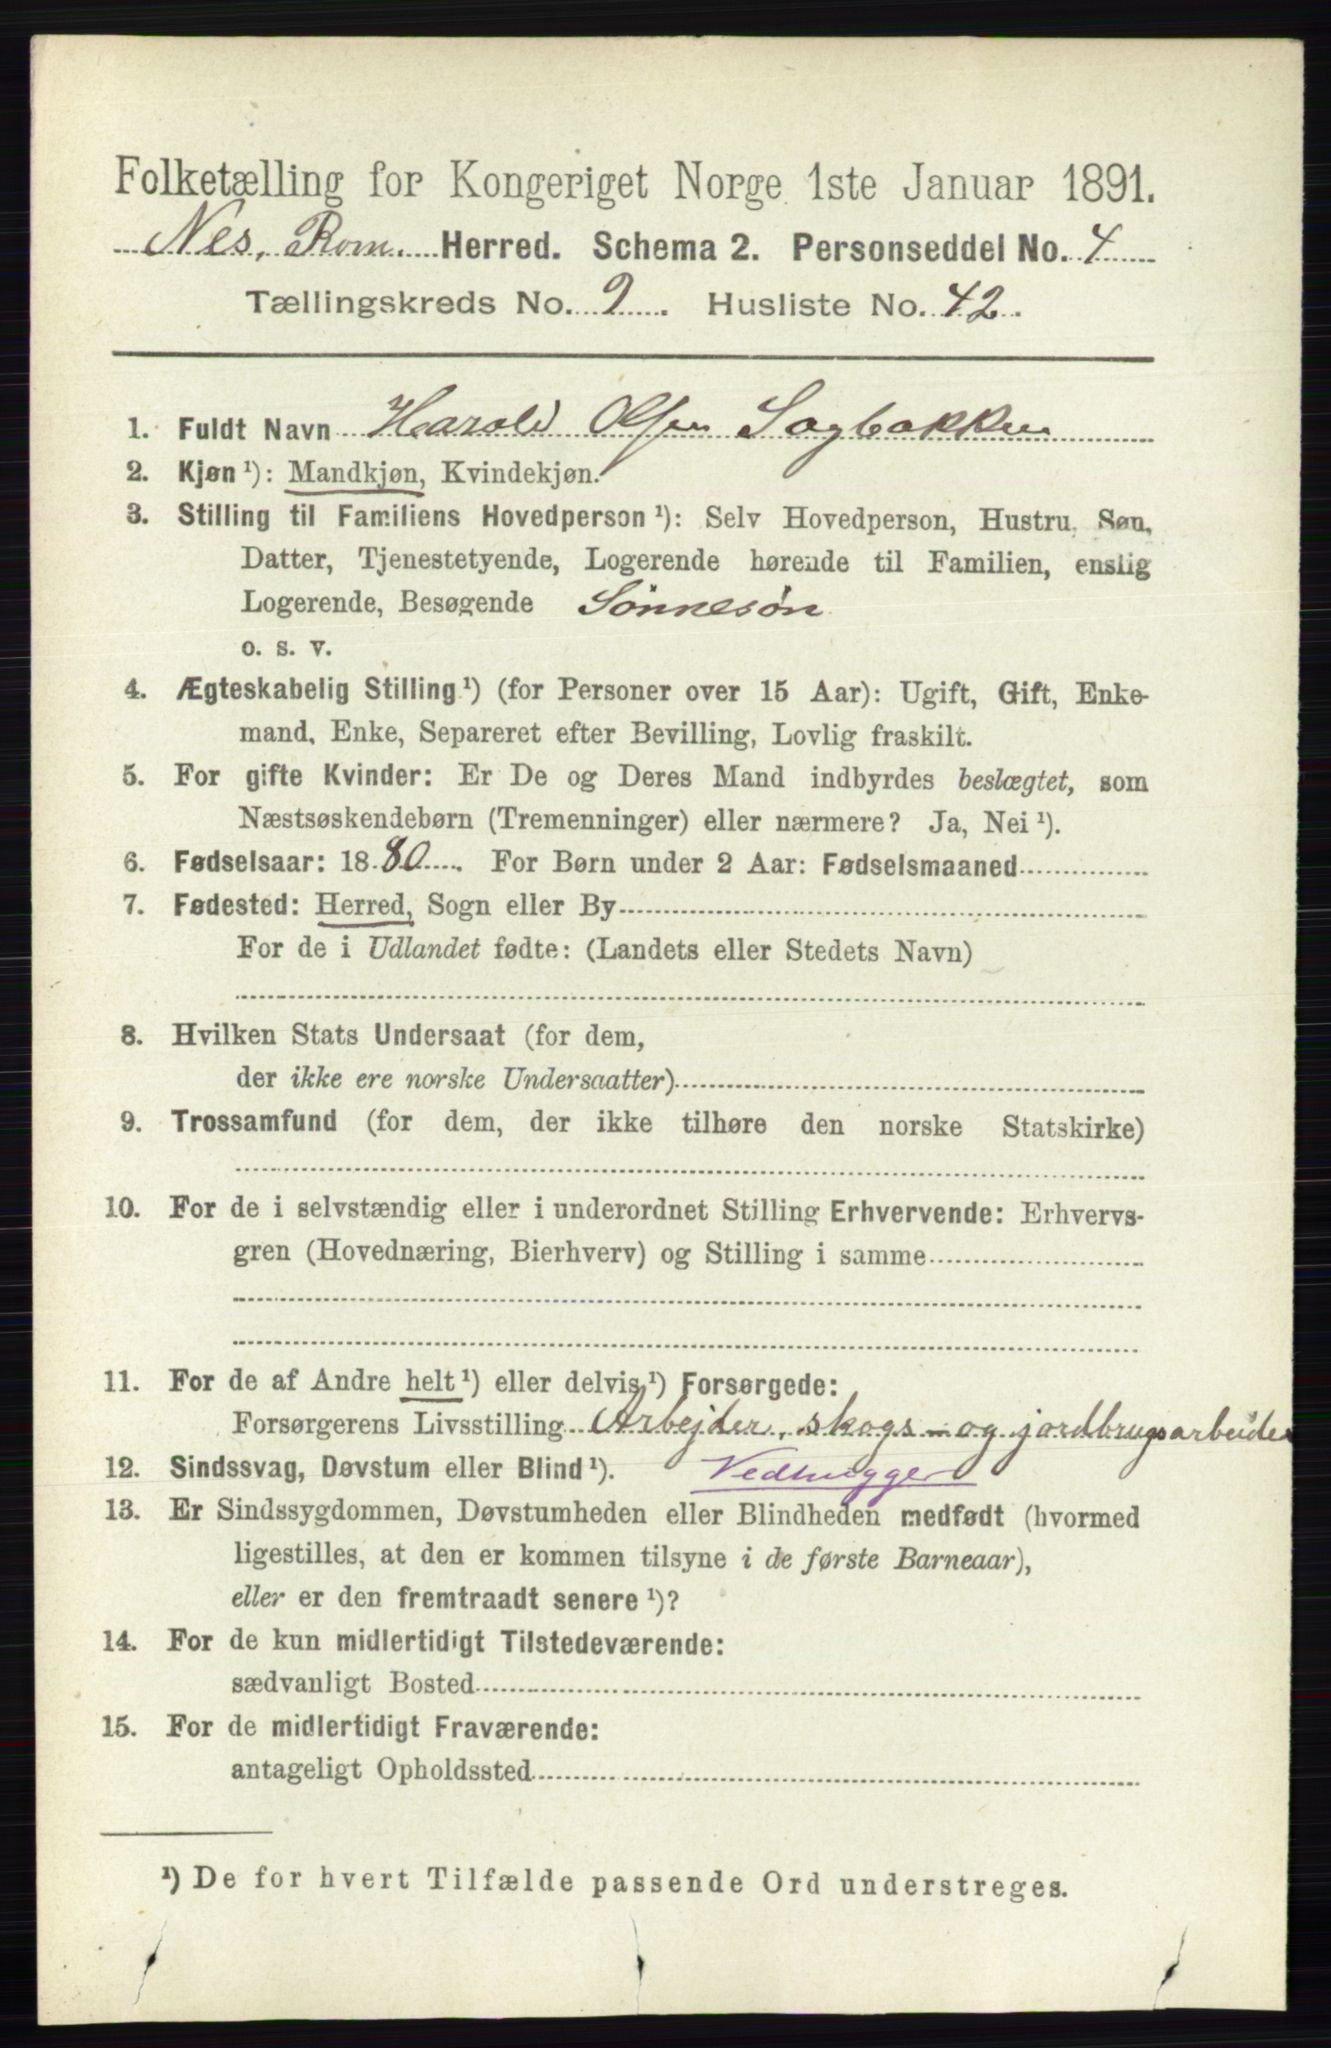 Folketælling for Kongeriget Norge 1ste Januar 1891.
Nes, Rom. Herred. Schema 2. Personseddel No. 4
Tællingskreds No. 9. Husliste No. 42.
1. Fuldt Navn Harald Olsen Sagbakken
2. Kjøn ¹): Mandkjøn, Kvindekjøn.
3. Stilling til Familiens Hovedperson ¹): Selv Hovedperson, Hustru, Søn,
Datter, Tjenestetyende, Logerende hørende til Familien, enslig
Logerende, Besøgende Sønnesøn
o. s. v.
4. Ægteskabelig Stilling ¹) (for Personer over 15 Aar): Ugift, Gift, Enke-
mand, Enke, Separeret efter Bevilling, Lovlig fraskilt.
5. For gifte Kvinder: Er De og Deres Mand indbyrdes beslægtet, som
Næstsøskendebørn (Tremenninger) eller nærmere? Ja, Nei ¹).
6. Fødselsaar: 1880. For Børn under 2 Aar: Fødselsmaaned
7. Fødested: Herred, Sogn eller By
For de i Udlandet fødte: (Landets eller Stedets Navn)
8. Hvilken Stats Undersaat (for dem,
der ikke ere norske Undersaatter)
9. Trossamfund (for dem, der ikke tilhøre den norske Statskirke)
10. For de i selvstændig eller i underordnet Stilling Erhvervende: Erhvervs-
gren (Hovednæring, Bierhverv) og Stilling i samme
11. For de af Andre helt ¹) eller delvis ¹) Forsørgede:
Forsørgerens Livsstilling Arbejder, skogs- og jordbrugsarbeider
12. Sindssvag, Døvstum eller Blind ¹). Vedhugger
13. Er Sindssygdommen, Døvstumheden eller Blindheden medfødt (hvormed
ligestilles, at den er kommen tilsyne i de første Barneaar),
eller er den fremtraadt senere ¹)?
14. For de kun midlertidigt Tilstedeværende:
sædvanligt Bosted
15. For de midlertidigt Fraværende:
antageligt Opholdssted
¹) De for hvert Tilfælde passende Ord understreges.